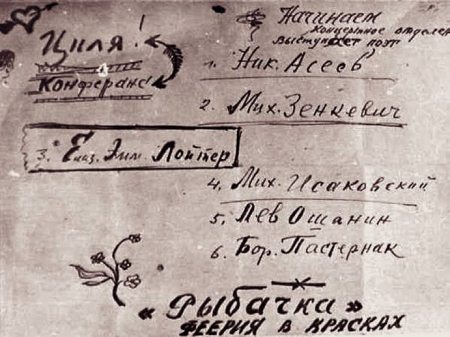 Циля!
Конферанс
Начинаем
Концертное отделен
Выступает поэт
1. Ник. Асеев
2. Мих. Зенкевич
3. Елиз. Эмм. Лойтер
4. Мих. Исаковский
5. Лев Ошанин
6. Бор. Пастернак
«Рыбачка»
феерия в красках